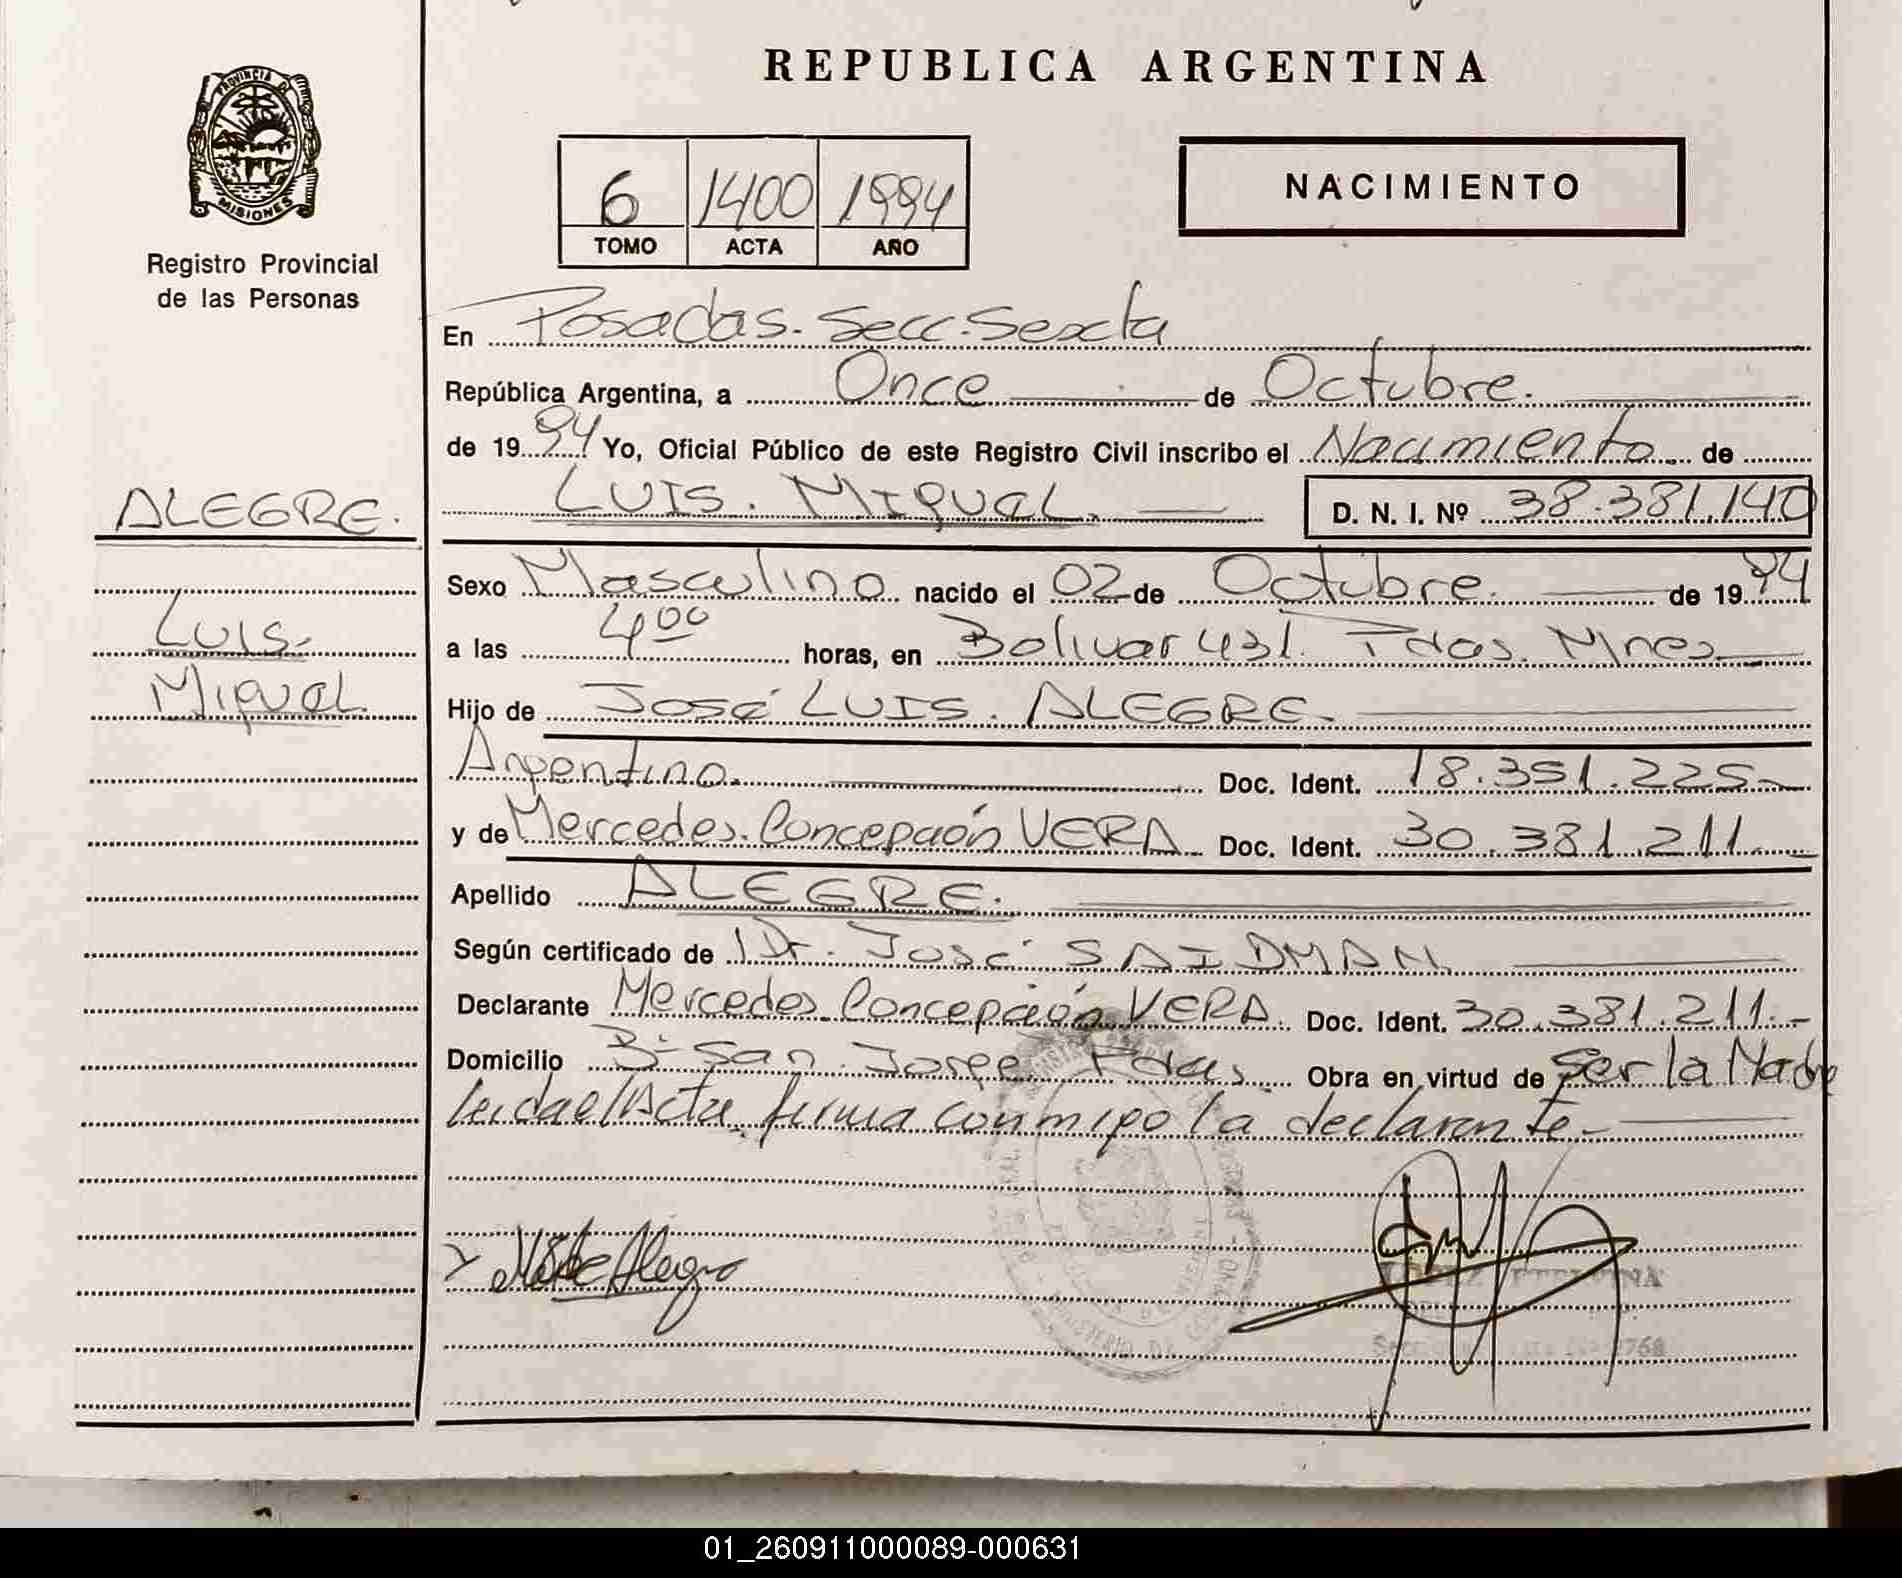 REPUBLICA ARGENTINA
PROVINCIA D
MISIONES
Registro Provincial
de las Personas
6 1400 1994
TOMO ACTA AÑO
NACIMIENTO
En Posadas. Secc. Sexta
República Argentina, a Once de Octubre.
de 1994 Yo, Oficial Público de este Registro Civil inscribo el Nacimiento de
ALEGRE.
LUIS. MIGUEL. D. N. I. Nº 38.381.140
Sexo Masculino nacido el 02 de Octubre. de 1994
Luis.
Miguel.
a las 4 00 horas, en Bolivar 431. Pdas. Mnes
Hijo de José LUIS. ALEGRE.
Argentino. Doc. Ident. 18.351.225
y de Mercedes. Concepción VERA Doc. Ident. 30.381.211
Apellido ALEGRE.
Según certificado de Dr. José SAIDMAN
Declarante Mercedes Concepción VERA. Doc. Ident. 30.381.211.-
Domicilio Bº San Jorge Pdas. Obra en virtud de Ser la Madre
leida el Acta, firma conmigo la declarante
Alegre
LOPEZ ETELVINA
768
01_260911000089-000631